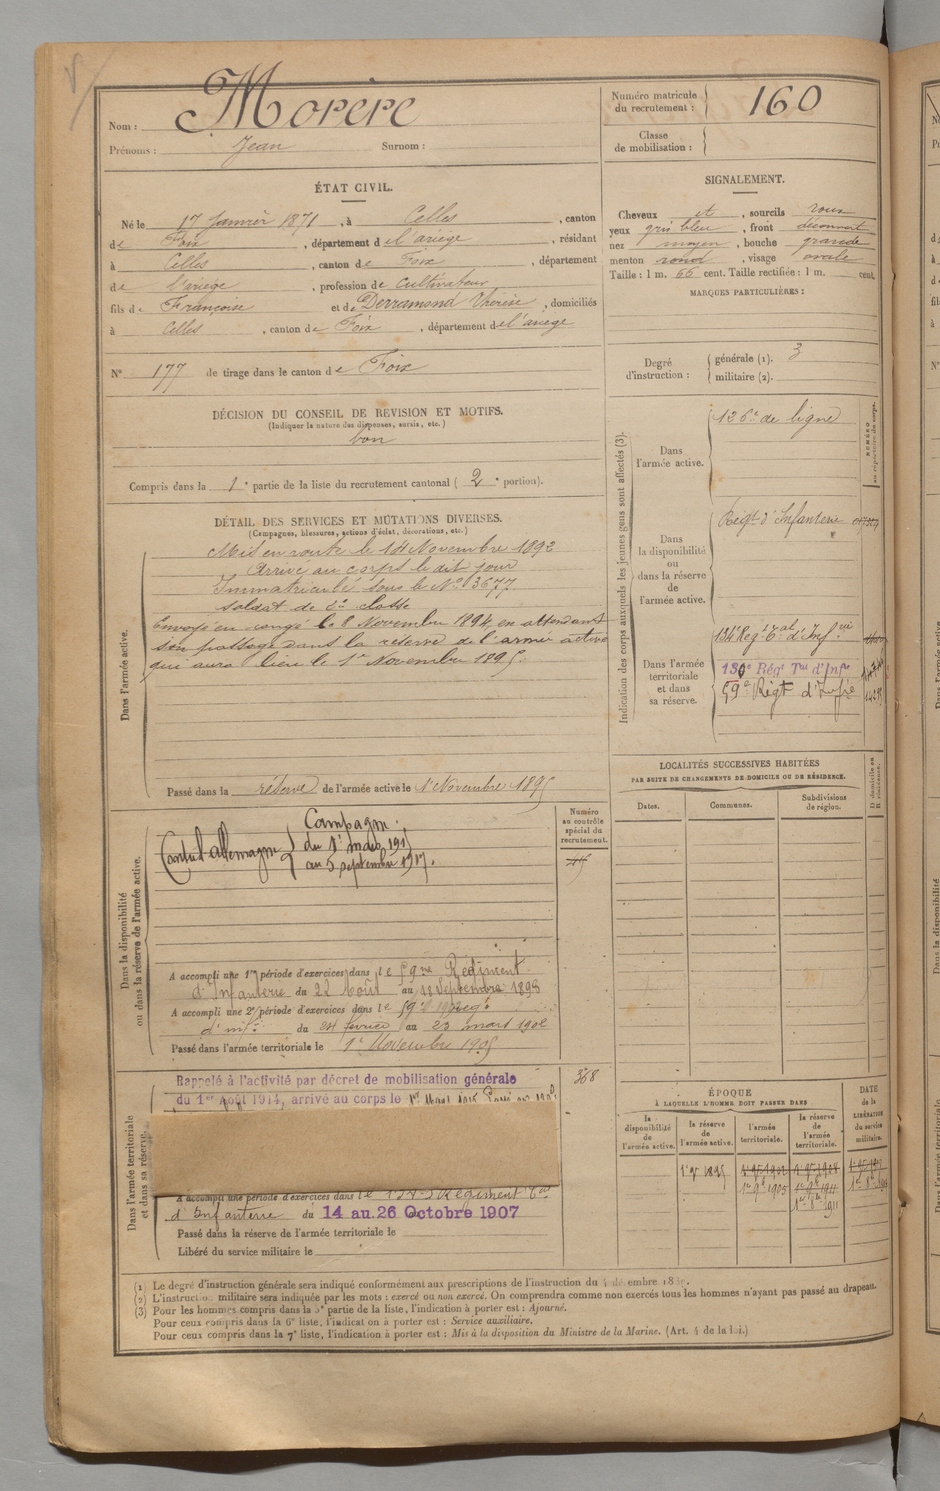 Morère
Nom :
Prénoms : Jean Surnom :
Numéro matricule du recrutement : 160
Classe de mobilisation :
ÉTAT CIVIL.
Né le 17 Janvier 1871, à Celles, canton
de Foix, département de l'ariège, résidant
à Celles, canton de Foix, département
de l'ariège, profession de cultivateur
fils de Françoise et de Derramond Thérèse, domiciliés
à Celles, canton de Foix, département de l'ariège
N° 177 de tirage dans le canton de Foix
DÉCISION DU CONSEIL DE REVISION ET MOTIFS.
(Indiquer la nature des dispenses, sursis, etc.)
bon
Compris dans la 1e partie de la liste du recrutement cantonal (2e portion).
SIGNALEMENT.
Cheveux et, sourcils roux
yeux gris bleu, front découvert
nez moyen, bouche grande
menton rond, visage ovale
Taille : 1 m. 66 cent. Taille rectifiée : 1 m. cent.
MARQUES PARTICULIÈRES :
Degré d'instruction : générale (1). 3
militaire (2).
DÉTAIL DES SERVICES ET MUTATIONS DIVERSES.
(Campagnes, blessures, actions d'éclat, décorations, etc.)
Dans l'armée active.
Mis en route le 14 Novembre 1892
Arrivé au corps le dit jour
Immatriculé sous le N° 3677
soldat de 2e classe
Envoyé en congé le 8 Novembre 1894, en attendant
son passage dans la réserve de l'armée active
qui aura lieu le 1er Novembre 1895.
Passé dans la réserve de l'armée active le 1er Novembre 1895
Indication des corps auxquels les jeunes gens sont affectés (3).
NUMÉRO au répertoire du corps.
Dans l'armée active.
126e de ligne
Dans la disponibilité ou dans la réserve de l'armée active.
Régt d'Infanterie
Dans l'armée territoriale et dans sa réserve.
134e Régt tal d'Infrie
130e Régt Tal d'Infie
59e Régt d'Infie
LOCALITÉS SUCCESSIVES HABITÉES
PAR SUITE DE CHANGEMENTS DE DOMICILE OU DE RÉSIDENCE.
Dates. Communes. Subdivisions de région.
Dans la disponibilité ou dans la réserve de l'armée active.
Numéro au contrôle spécial du recrutement.
Campagne.
Contre l'Allemagne du 1er mars 1915
au 5 septembre 1917.
A accompli une 1re période d'exercices dans le 59me Régiment
d'Infanterie du 22 Août au 18 Septembre 1898
A accompli une 2e période d'exercices dans le 59e
d'infie du 24 février au 23 mars 1902
Passé dans l'armée territoriale le 1er Novembre 1905
Dans l'armée territoriale et dans sa réserve.
368
Rappelé à l'activité par décret de mobilisation générale
du 1er Août 1914, arrivé au corps le 1er Mars 1915
A accompli une période d'exercices dans le 134e Régiment tal
d'Infanterie du 14 au 26 Octobre 1907
Passé dans la réserve de l'armée territoriale le
Libéré du service militaire le
ÉPOQUE
À LAQUELLE L'HOMME DOIT PASSER DANS
la disponibilité de l'armée active. la réserve de l'armée active. l'armée territoriale. la réserve de l'armée territoriale.
DATE de la LIBÉRATION du service militaire.
1er 9e 1895
1er 9e 1905
(1) Le degré d'instruction générale sera indiqué conformément aux prescriptions de l'instruction du
(2) L'instruction militaire sera indiquée par les mots : exercé ou non exercé. On comprendra comme non exercés tous les hommes n'ayant pas passé au drapeau.
(3) Pour les hommes compris dans la 5e partie de la liste, l'indication à porter est : Ajourné.
Pour ceux compris dans la 6e liste, l'indication à porter est : Service auxiliaire.
Pour ceux compris dans la 7e liste, l'indication à porter est : Mis à la disposition du Ministre de la Marine. (Art. 4 de la loi.)